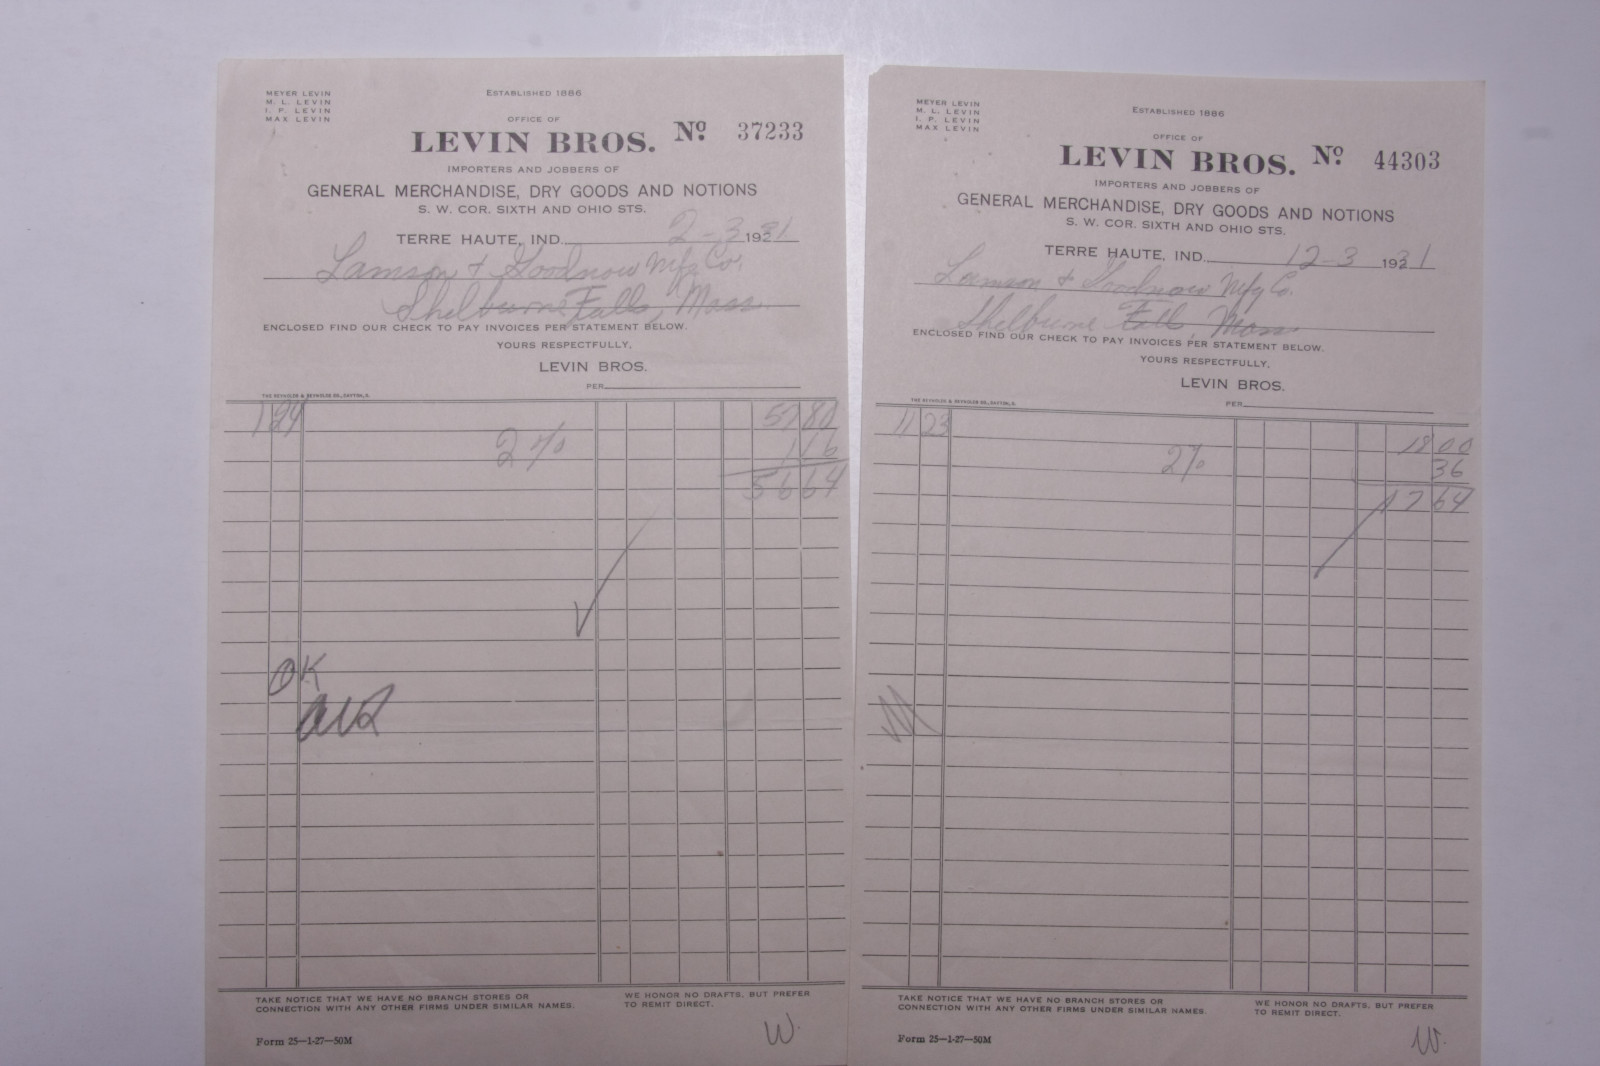 MEYER LEVIN
M. L. LEVIN
I. P. LEVIN
MAX LEVIN
ESTABLISHED 1886
OFFICE OF
LEVIN BROS. No. 37233
IMPORTERS AND JOBBERS OF
GENERAL MERCHANDISE, DRY GOODS AND NOTIONS
S. W. COR. SIXTH AND OHIO STS.
TERRE HAUTE, IND. 2-3 1931
Lamson & Goodnow Mfg Co.
Shelburne Falls, Mass
ENCLOSED FIND OUR CHECK TO PAY INVOICES PER STATEMENT BELOW.
YOURS RESPECTFULLY,
LEVIN BROS.
PER
THE REYNOLDS & REYNOLDS CO., DAYTON, O.
1 24 57 80
2% 1 16
56 64
OK
TAKE NOTICE THAT WE HAVE NO BRANCH STORES OR
CONNECTION WITH ANY OTHER FIRMS UNDER SIMILAR NAMES.
WE HONOR NO DRAFTS, BUT PREFER
TO REMIT DIRECT.
W.
Form 25—1-27—50M
MEYER LEVIN
M. L. LEVIN
I. P. LEVIN
MAX LEVIN
ESTABLISHED 1886
OFFICE OF
LEVIN BROS. No. 44303
IMPORTERS AND JOBBERS OF
GENERAL MERCHANDISE, DRY GOODS AND NOTIONS
S. W. COR. SIXTH AND OHIO STS.
TERRE HAUTE, IND. 12-3 1931
Lamson & Goodnow Mfg Co.
Shelburne Falls, Mass
ENCLOSED FIND OUR CHECK TO PAY INVOICES PER STATEMENT BELOW.
YOURS RESPECTFULLY,
LEVIN BROS.
PER
THE REYNOLDS & REYNOLDS CO., DAYTON, O.
11 23 18 00
2% 36
17 64
TAKE NOTICE THAT WE HAVE NO BRANCH STORES OR
CONNECTION WITH ANY OTHER FIRMS UNDER SIMILAR NAMES.
WE HONOR NO DRAFTS, BUT PREFER
TO REMIT DIRECT.
W.
Form 25—1-27—50M